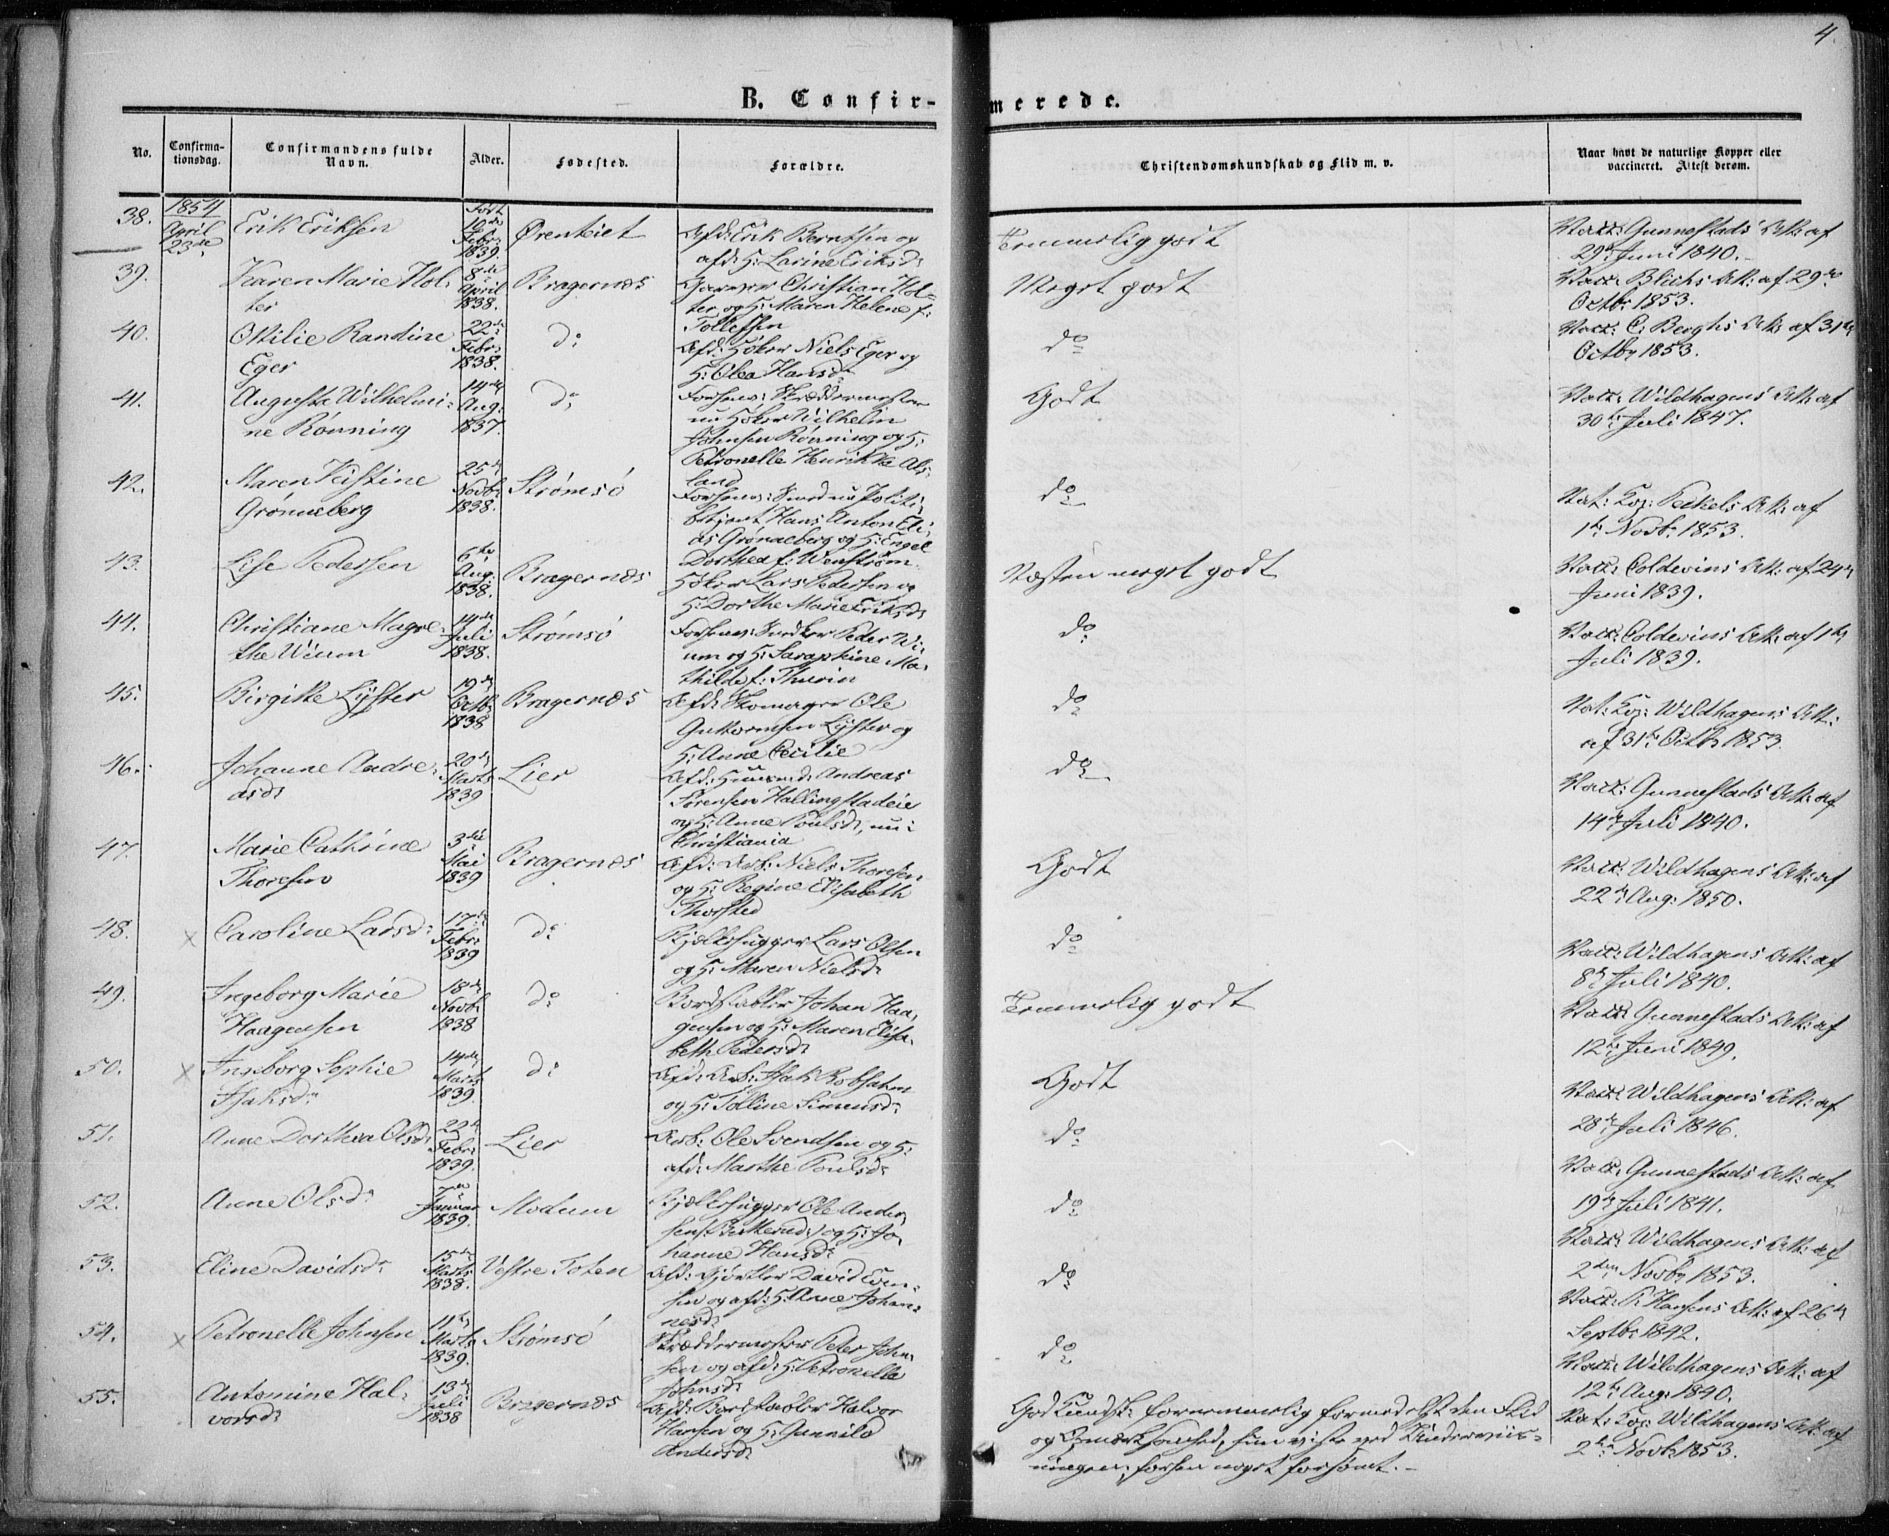 4.
B. Confir-
merede.
No.
Confirma-
tionsdag.
Confirmandens fulde
Navn.
Alder.
Fødested.
Forældre.
Christendomskundskab og Flid m. v.
Naar havt de naturlige Kopper eller
vaccineret. Attest derom.
38. 1854 April 23de Erik Eriksen Født 10de Febr: 1839. Ørenkiet Afd: Erik Berntsen og
afd: H: Larine Eriksd:
Temmelig godt
Vacc: Gunnestads Att: af
29de Juni 1840.
39. Karen Marie Hol-
ter
8de April 1838. Bragernæs Garver Christian Hol-
ter og H: Maren Helene f:
Tollefsen
Meget godt
Vacc: Blichs Att: af 29de
Octbr 1853.
40. Ottilie Randine
Eger
22de Febr: 1838. do: Afd: Høker Niels Eger og
H: Olea Hansd:
do
Vacc: C: Berghs Att: af 31te
Octbr 1853.
41. Augusta Wilhelmi-
ne Rönning
14de Aug: 1837. do: Forhenv: Skræddermester
nu Høker Wilhelm
Johnsen Rönning og H:
Petronelle Henrikke Als-
land
Godt
Vacc: Wildhagens Att: af
30te Juli 1847.
42. Maren Kistine
Grønneberg
25de Novbr 1838. Strømsö Forhenv: Smed nu Politi-
betjent Hans Anton Eli-
as Grønneberg og H: Engel
Dorthea f: Wenström
do
Nat: Kop: Peckels Att: af
1te Novbr 1853.
43. Lise Pedersen 6te Aug: 1838. Bragernæs Høker Lars Pedersen og
H: Dorthe Marie Eriksd:
Næsten meget godt
Vacc: Coldevins Att: af 24de
Juni 1839.
44. Christiane Magre-
the Wium
14de Juli 1838. Strömsö Forhenv: Snedker Peder Wi-
um og H: Seraphine Ma-
thilde f: Thurin
do
Vacc: Coldevins Att: af 1te
Juli 1839.
45. Birgitte Lÿster 19de Octbr 1838 Bragernæs Afd: Skomager Ole
Guttormsen Lÿster og
H: Anne Cecilie
do
Nat: Kop: Wildhagens Att:
af 31te Octbr 1853.
46. Johanne Andre-
asd:
20de Marts 1839 Lier Afd: Huusmd: Andreas
Sörensen Hallingstadeie
og H: Anne Poulsd:, nu i
Christiania
do
Vacc: Gunnestads Att: af
14de Juli 1840.
47. Marie Cathrine
Thoresen
3die Mai 1839 Bragernæs Afd: Arb: Niels Thoresen
og H: Regine Elisabeth
Thorsted
Godt
Vacc: Wildhagens Att: af
22de Aug: 1850.
48. x Caroline Larsd: 17de Febr: 1839 do: Bjælkehugger Lars Olsen
og H: Maren Nielsd:
do
Vacc: Wildhagens Att: af
8de Juli 1840.
49. Ingeborg Marie
Haagensen
18de Novbr 1838 do: Bordstabler Johan Haa-
gensen og H: Maren Elisa-
beth Pedersd:
Temmelig godt
Vacc: Gunnestads Att: af
12te Juni 1849.
50. x Ingeborg Sophie
Isaksd:
14de Marts 1839. do: Afd: Arb: Isak Robsahm
og H: Tolline Simensd:
Godt
Vacc: Wildhagens Att: af
28de Juli 1846.
51. Anne Dorthea Olsd: 22de Febr: 1839. Lier Arb: Ole Svendsen og H:
afd: Marthe Poulsd:
do
Vacc: Gunnestads Att: af
19de Juli 1841.
52. Anne Olsd: 7de Januar 1839. Modum Bjælkehugger Ole Ander-
sen og H: Jo-
hanne Hansd:
do
Vacc: Wildhagens Att: af
2den Novbr 1853.
53. Eline Davidsd: 15de Marts 1838. Vestre Toten Afd: Gjørtler David Even-
sen og afd: H: Anne Johan-
nesd:
do
Vacc: R. Hansens Att: af 26de
Septbr 1842.
54. x Petronelle Johnsen 11te Marts 1839. Strömsö Skræddermester Peter John-
sen og afd: H: Petronelle
Johnsd:
do
Vacc: Wildhagens Att: af
12te Aug: 1840.
55. Antomine Hal-
vorsd:
13de Juli 1838 Bragernæs Afd: Bordstabler Halvor
Hansen og H: Gunnild
Andersd:
God Kundsk: fornemmelig formedelst den Flid
og Opmærksomhed, hun viste ved Underviis-
ningen; forhen noget forsömt.
Nat: Kop: Wildhagens Att: af
2den Novbr 1853.